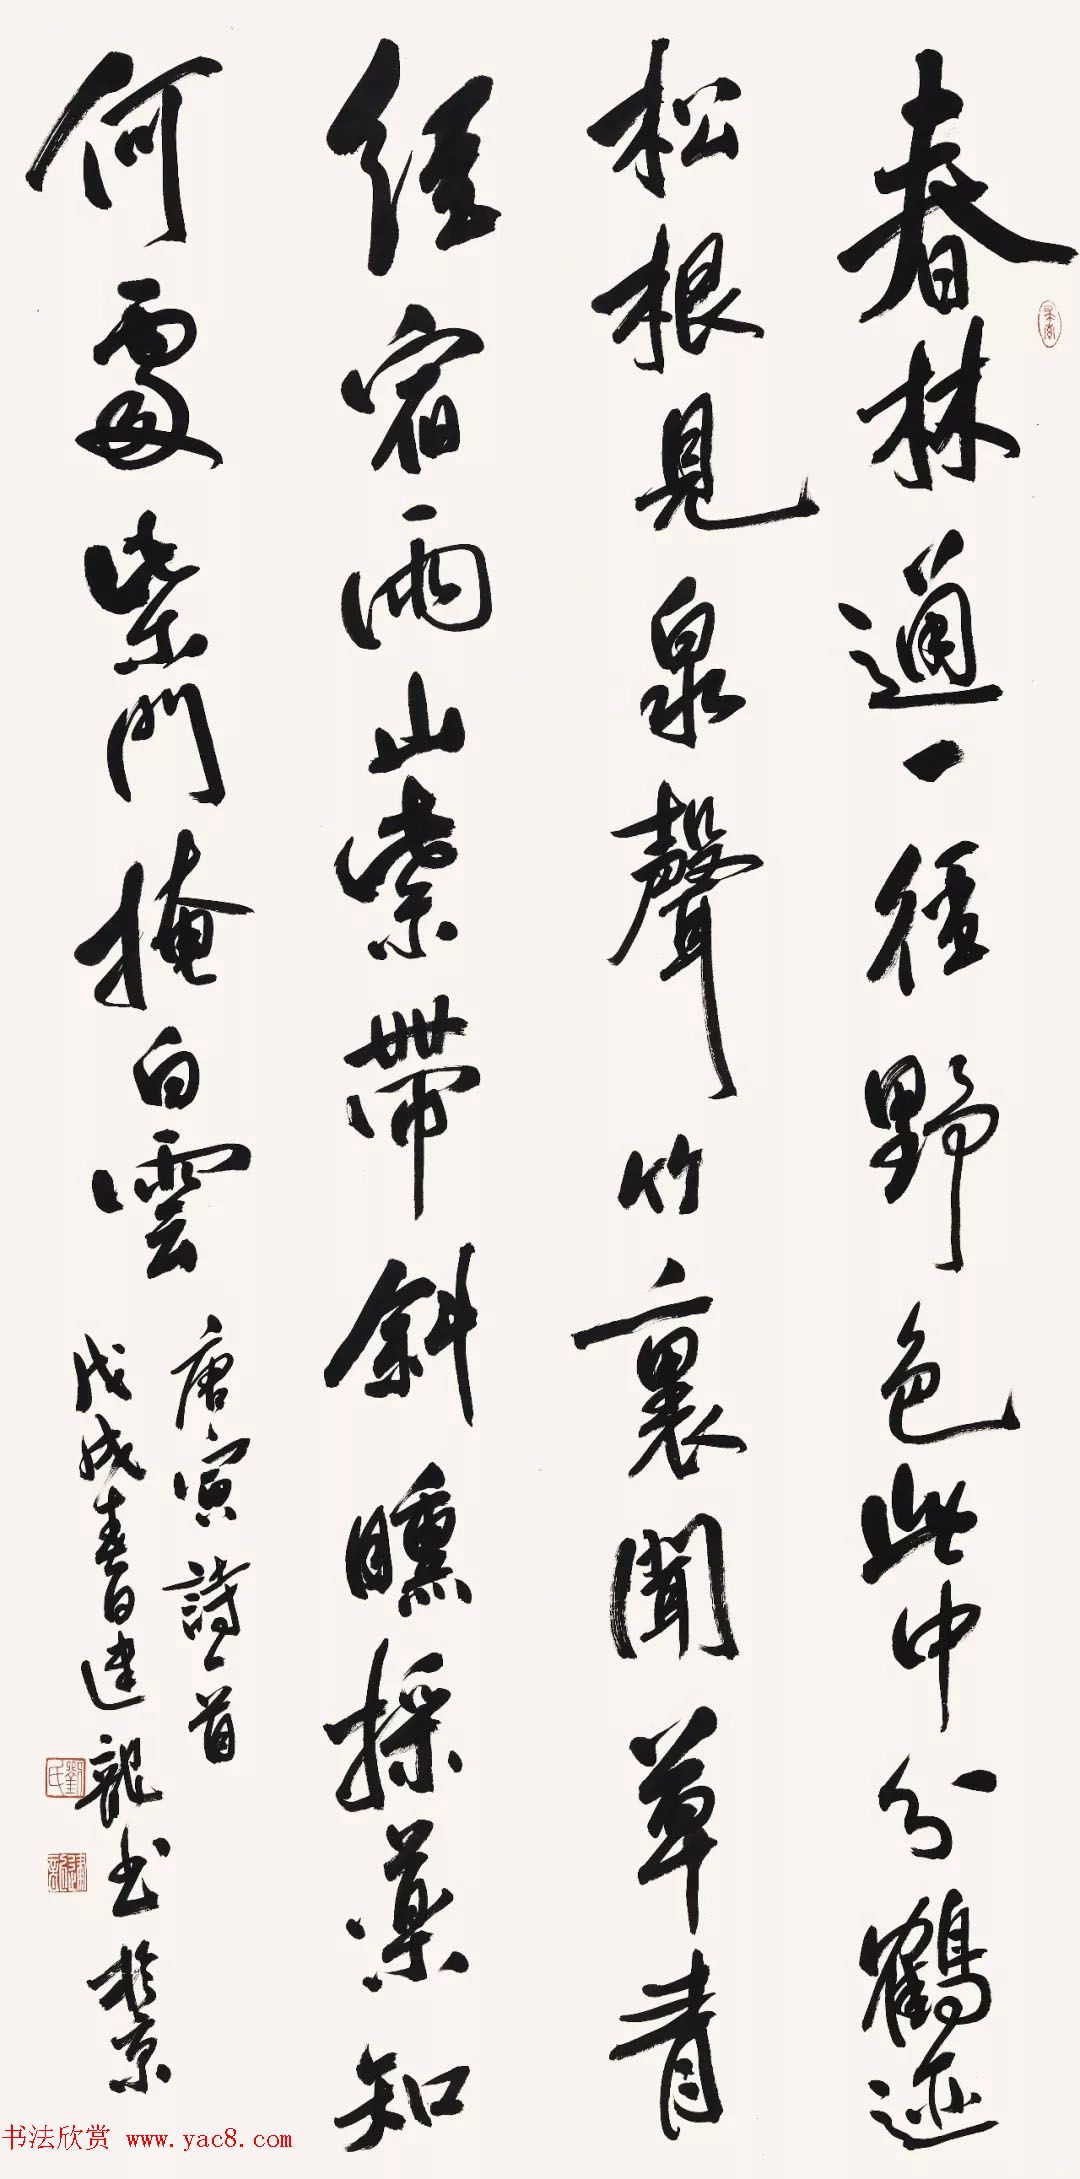 春林通一徑野色此中分鶴迹
松根見泉聲竹裏聞草青
經宿雨山紫帶斜曛採藥知
何處柴門掩白雲
唐寅詩一首
戊戌春日建龍书於京
劉氏
建龍
书法欣赏 www.yac8.com